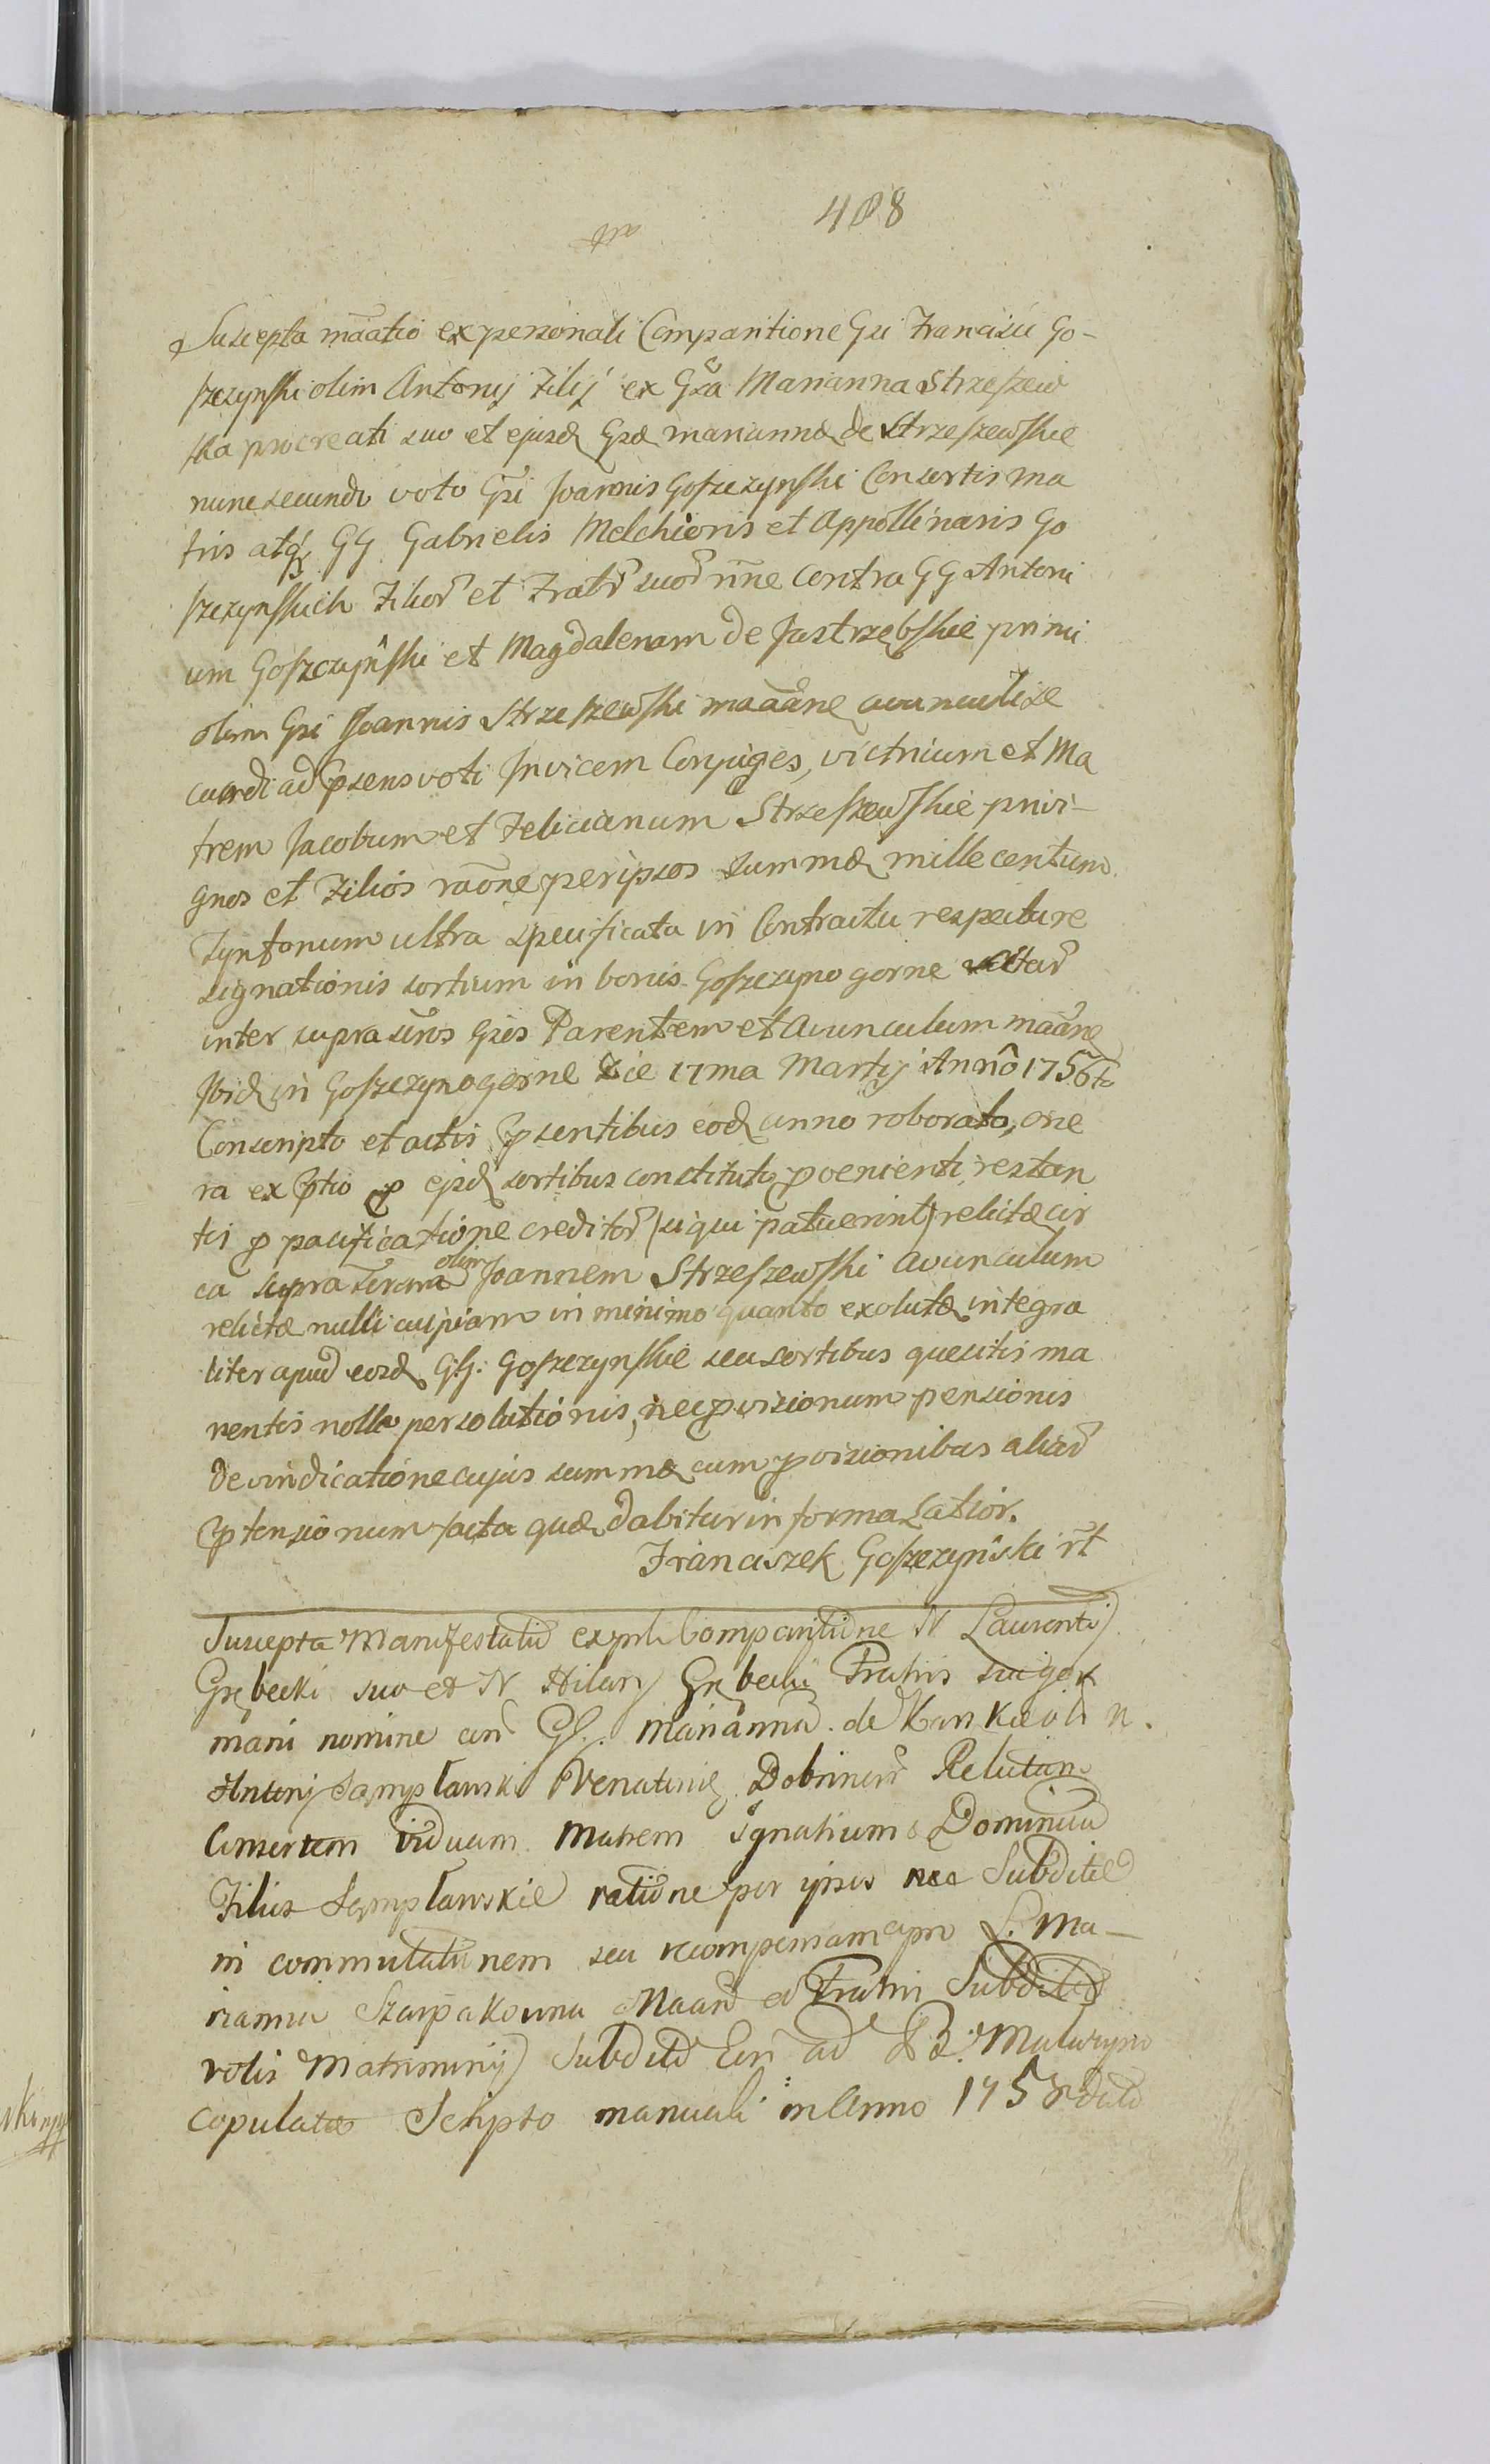 408
Suscepta māātio ex personali Comparitione Gsi Francisci Go-
szczynski olim Antonij Filij ex Gsa Marianna Strzeszew
ska procreati suo et ejusd Gsæ mariannæ de Strzeszewskie
nunc secundi voto Gsi Joannis Goszczynski Consortis ma
tris atq GG Gabrielis Melchioris et Appollinaris Go
szczynskich Filior et Fratr suor nn̄e contra GG Antoni
um Goszczynski et Magdalenam de Jastrzębskie primi
olim Gsi Joannis Strzeszewski maāāne avunculi se
cundi ad psens voti Invicem Conjuges, victricum et Ma
trem Jacobum et Felicianum Strzeszewskie privi-
gnos et Filios raōne per ipsos summæ mille centum
Tynfonum ultra specificata in Contractu respectu re
signationis sortium in bonis Goszczyno gorne
inter supra Gsos Parentem et Avunculum māāne
Ibid in Goszczynogorne Die 17ma Martij Anno 1756to
Conscripto et actis psentibus eod anno roborato, one
ra ex ptio p ejsd sortibus constituto pvenienti restan
tis p pacificatione creditor (siqui patuerint) relictæ cir
ca supra olim Joannem Strzeszewski avunculum
relictæ nulli cuipiam in minimo quanto exolutæ integra
liter apud eosd G.G. Goszczynskie seu sortibus quesitis ma
nentis nolle persolutionis, nec pvisionum pensionis
Devindicatione cujus summæ cum pvisionibus aliar
ptensionum facta quæ dabitur in forma Latior.
Franciszek Goszczynski rt
Suscepta Manifestatio ex pnli Comparitione N Laurentij
Grębecki suo et N Hilary Grębecki Fratris sui ger
mani nomine con G. Marianna de Kankie olim N.
Antonj Sampławski Venatoris Dobrinen Relictam
Consortem viduam Matrem Ignatium & Dominicum
Filios Sampławskie ratione per ipsos nea Subditæ
in commutationem seu recompensam L. Ma-
rianna Szarpakowna et Fratrii Subdito
votis Matrimonij Subdito ad B. Maluszyno
copulatæ Scripto manuali in Anno 175